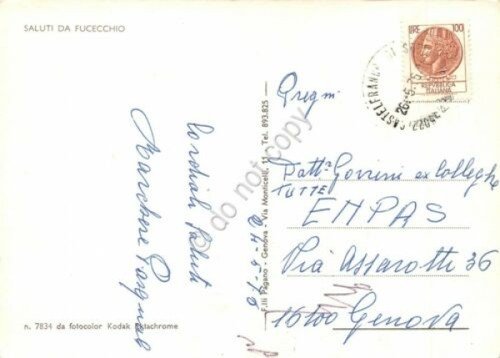 SALUTI DA FUCECCHIO
Cordiali Saluti
Marchese Pasquale
n. 7834 da fotocolor Kodak Ektachrome
F.lli Pagano - Genova - Via Monticelli, 11 - Tel. 893.825
LIRE 100
REPVBBLICA
ITALIANA
CASTELFRANCO
Pregmi
Dott. Gorrini ex colleghi
TUTTI
ENPAS
Via Assarotti 36
16100 Genova
do not copy